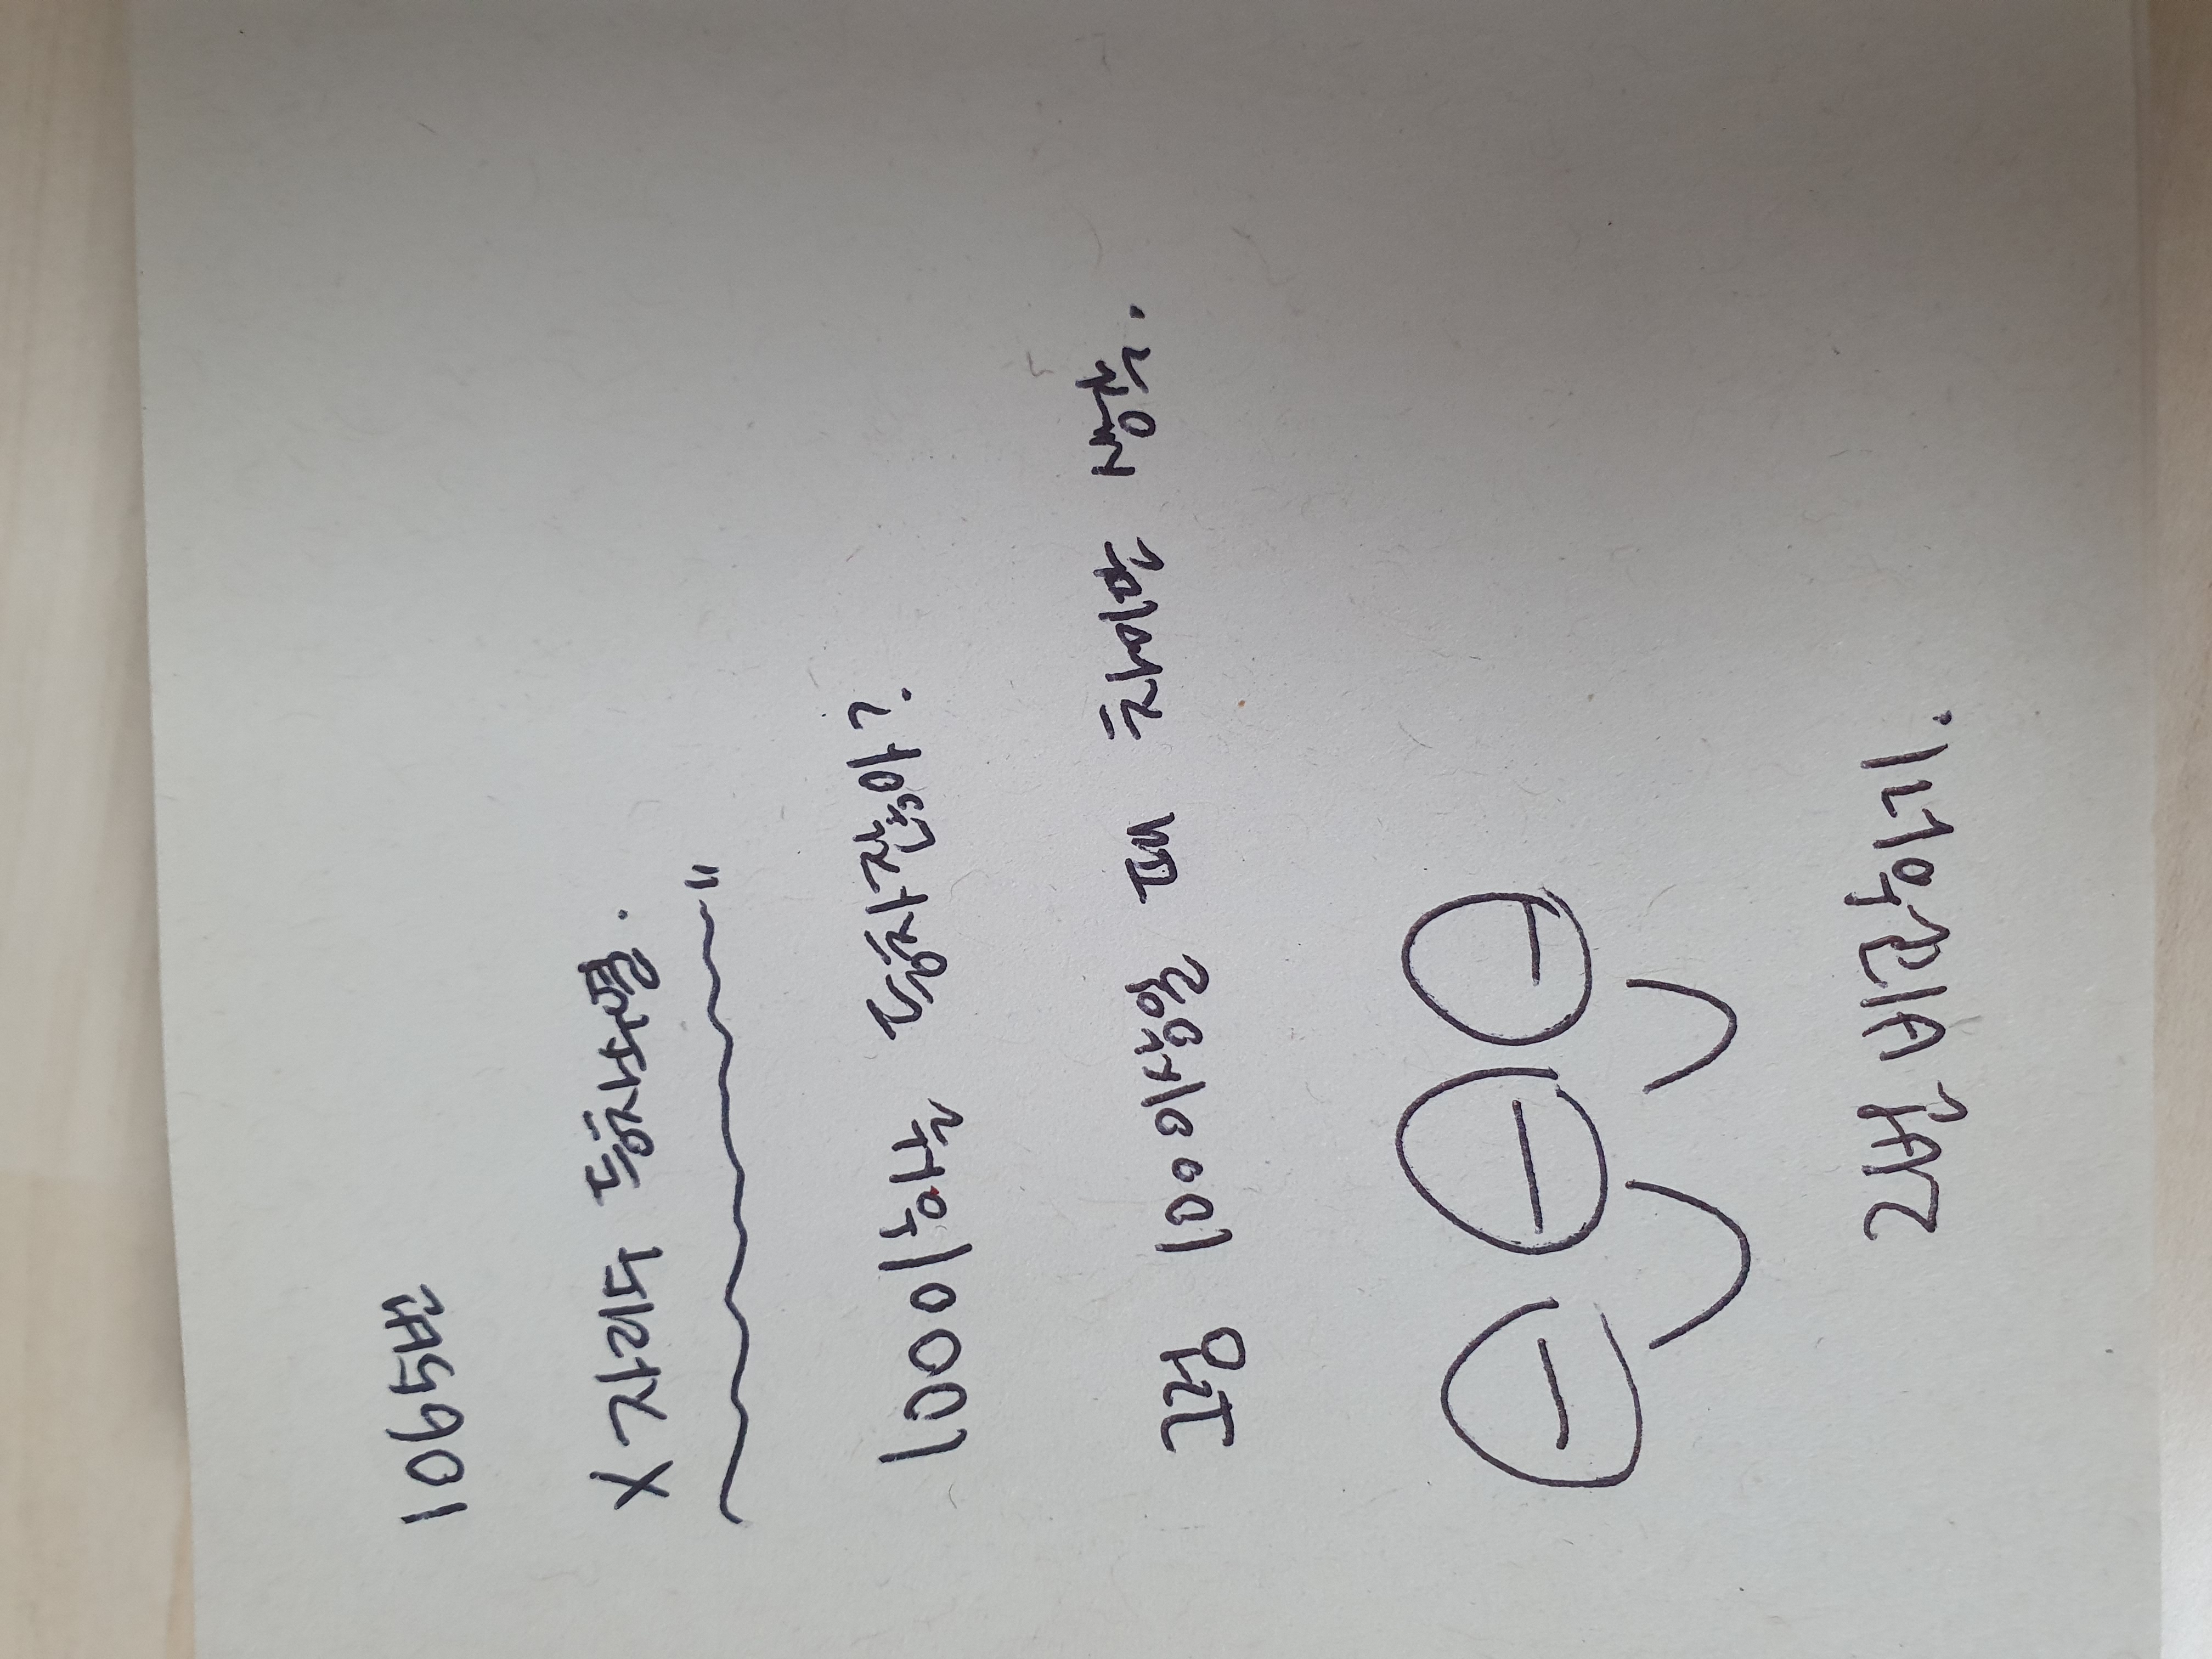 1065번
X 자리수 등차수열.
100이하는 등차잖아?
그럼 100이상일 때 차이만 생각.
2번 비교하기.